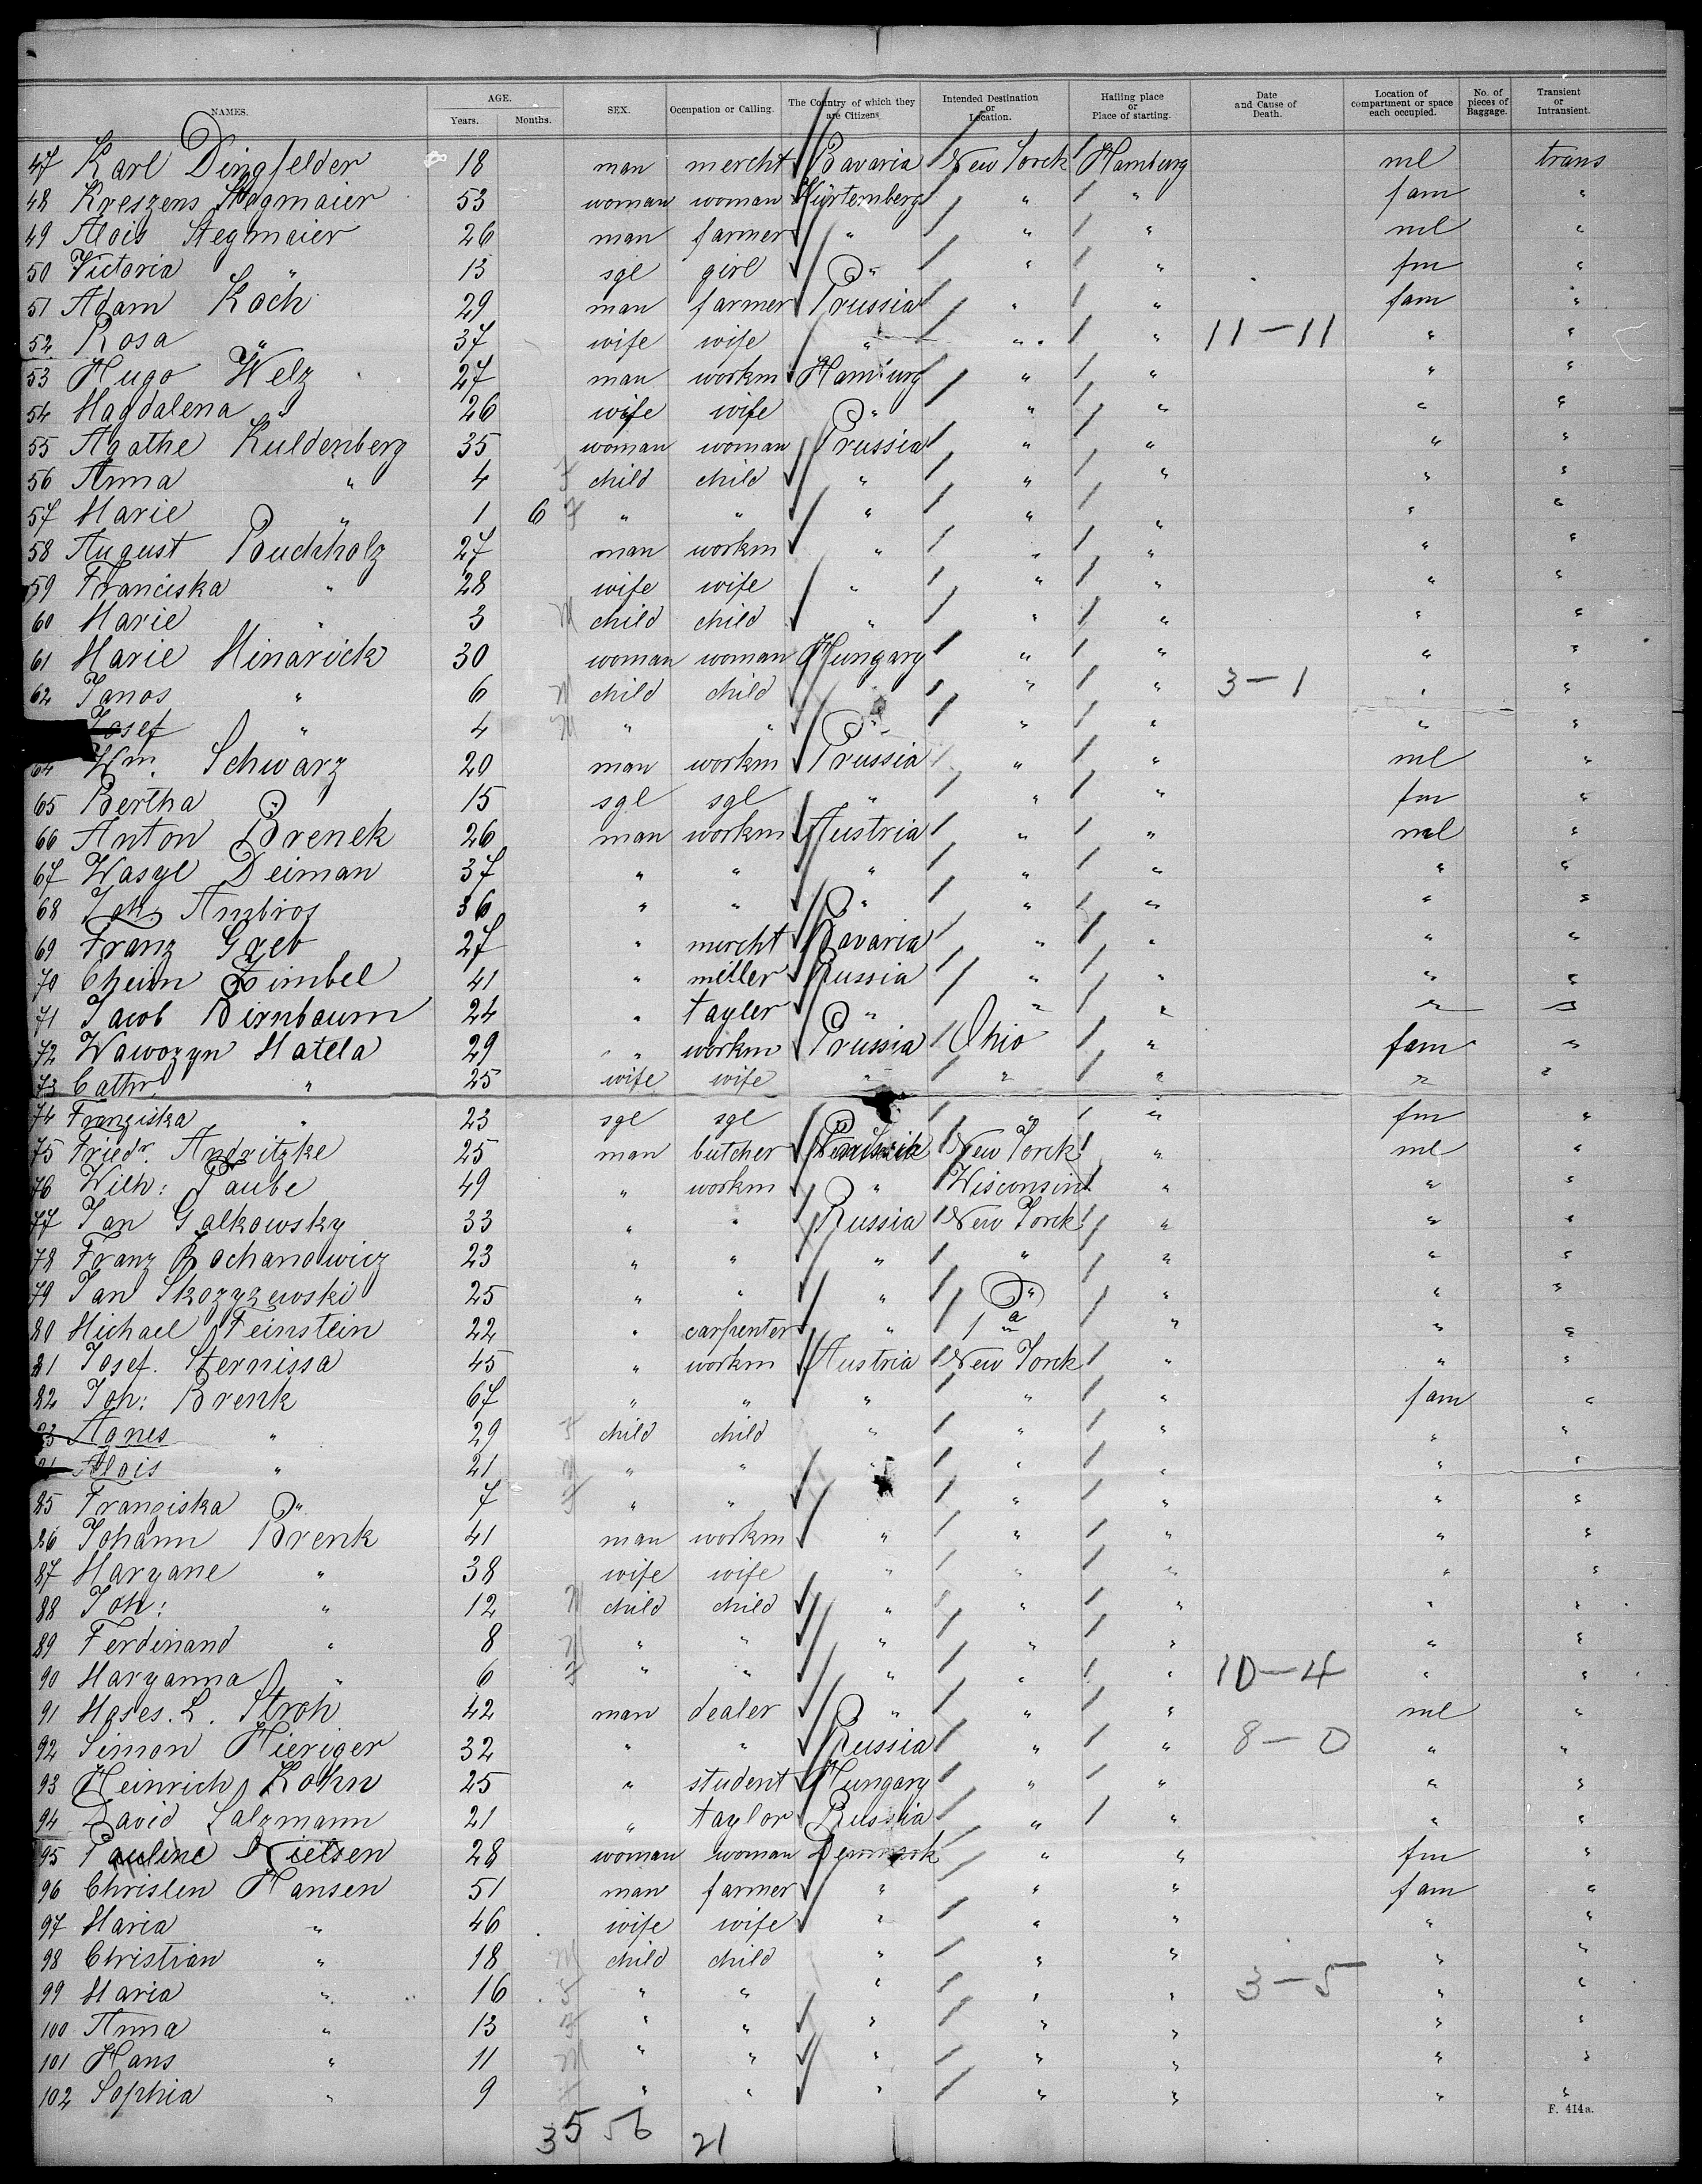 NAMES. AGE. Years. Months. SEX. Occupation or Calling. The Country of which they are Citizens Intended Destination or Location. Hailing place or Place of starting. Date and Cause of Death. Location of compartment or space each occupied. No. of pieces of Baggage. Transient or Intransient.
47 Karl Dingfelder 18 man mercht Bavaria New Yorck Hamburg ml trans
48 Kreszens Stegmaier 53 woman woman Würtemberg " " fam "
49 Alois Stegmaier 26 man farmer " " " ml "
50 Victoria " 13 sgl girl " " " fm "
51 Adam Koch 29 man farmer Prussia " " fam "
52 Rosa " 37 wife wife " " " 11-11 " "
53 Hugo Welz 27 man workm Hamburg " " " "
54 Magdalena " 26 wife wife " " " " "
55 Agathe Kuldenberg 35 woman woman Prussia " " " "
56 Anna " 4 F child child " " " " "
57 Marie " 1 6 F " " " " " " "
58 August Buchholz 27 man workm " " " " "
59 Franciska " 28 wife wife " " " " "
60 Marie " 3 M child child " " " " "
61 Marie Minarick 30 woman woman Hungary " " " "
62 Janos " 6 M child child " " " 3-1 " "
Josef " 4 M " " " " " " "
64 Wm. Schwarz 20 man workm Prussia " " ml "
65 Bertha " 15 sgl sgl " " " fm "
66 Anton Brenek 26 man workm Austria " " ml "
67 Wasyl Deiman 37 " " " " " " "
68 Joh. Ambros 36 " " " " " " "
69 Franz Greb 27 " mercht Bavaria " " " "
70 Cheim Zimbel 41 " miller Russia " " " "
71 Jacob Birnbaum 24 " tayler " " " " "
72 Wawozyn Matela 29 " workm Prussia Ohio " fam "
73 Cathr. " 25 wife wife " " " " "
74 Franziska " 23 sgl sgl " " " fm "
75 Friedr. Andritzke 25 man butcher New Yorck " ml "
76 Wilh: Taube 49 " workm " Wisconsin " " "
77 Jan Galkowsky 33 " " Russia New Yorck " " "
78 Franz Kochanowicz 23 " " " " " " "
79 Jan Skozyzewski 25 " " " " " " "
80 Michael Feinstein 22 " carpenter " Pa " " "
81 Josef. Sternissa 45 " workm Austria New Yorck " " "
82 Joh: Brenk 67 " " " " " fam "
83 Agnes " 29 F child child " " " " "
Alois " 21 " " " " " " "
85 Franziska " 7 F " " " " " " "
86 Johann Brenk 41 man workm " " " " "
87 Maryane " 38 wife wife " " " " "
88 Joh: " 12 M child child " " " " "
89 Ferdinand " 8 M " " " " " " "
90 Maryanna " 6 F " " " " " 10-4 " "
91 Moses. L. Stroh 42 man dealer " " " ml "
92 Simon Hieriger 32 " " Russia " " 8-0 " "
93 Heinrich Kohn 25 " student Hungary " " " "
94 David Salzmann 21 " taylor Russia " " " "
95 Pauline Nielsen 28 woman woman Denmark " " fm "
96 Christen Hansen 51 man farmer " " " fam "
97 Maria " 46 wife wife " " " " "
98 Christian " 18 M child child " " " " "
99 Maria " 16 F " " " " " 3-5 " "
100 Anna " 13 F " " " " " " "
101 Hans " 11 M " " " " " " "
102 Sophia " 9 F " " " " " " "
F. 414a.
35 56 21